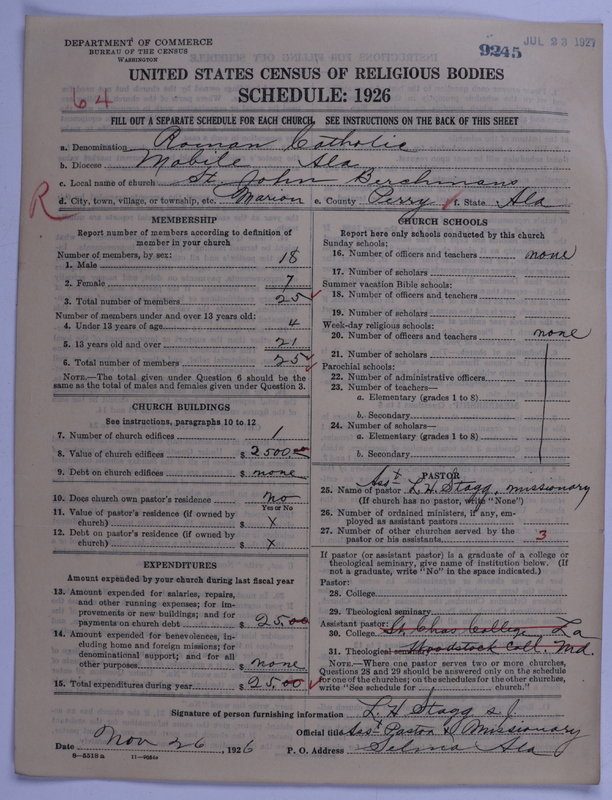 DEPARTMENT OF COMMERCE
BUREAU OF THE CENSUS
WASHINGTON
9245
JUL 23 1927
UNITED STATES CENSUS OF RELIGIOUS BODIES
SCHEDULE: 1926
64
FILL OUT A SEPARATE SCHEDULE FOR EACH CHURCH. SEE INSTRUCTIONS ON THE BACK OF THIS SHEET
a. Denomination Roman Catholic
b. Diocese Mobile Ala
c. Local name of church St. John Berchmans
R
d. City, town, village, or township, etc. Marion e. County Perry f. State Ala
MEMBERSHIP
Report number of members according to definition of
member in your church
Number of members, by sex:
1. Male 18
2. Female 7
3. Total number of members 25
Number of members under and over 13 years old:
4. Under 13 years of age 4
5. 13 years old and over 21
6. Total number of members 25
NOTE.—The total given under Question 6 should be the
same as the total of males and females given under Question 3.
CHURCH BUILDINGS
See instructions, paragraphs 10 to 12
7. Number of church edifices 1
8. Value of church edifices $ 2500.00
9. Debt on church edifices $ none
10. Does church own pastor's residence no
Yes or No
11. Value of pastor's residence (if owned by
church) $ x
12. Debt on pastor's residence (if owned by
church) $ x
EXPENDITURES
Amount expended by your church during last fiscal year
13. Amount expended for salaries, repairs,
and other running expenses; for im-
provements or new buildings; and for
payments on church debt $ 25.00
14. Amount expended for benevolences, in-
cluding home and foreign missions; for
denominational support; and for all
other purposes $ none
15. Total expenditures during year $ 25.00
CHURCH SCHOOLS
Report here only schools conducted by this church
Sunday schools:
16. Number of officers and teachers none
17. Number of scholars
Summer vacation Bible schools:
18. Number of officers and teachers
19. Number of scholars
Week-day religious schools:
20. Number of officers and teachers none
21. Number of scholars
Parochial schools:
22. Number of administrative officers
23. Number of teachers—
a. Elementary (grades 1 to 8)
b. Secondary
24. Number of scholars—
a. Elementary (grades 1 to 8)
b. Secondary
PASTOR
25. Name of pastor Asst L. H. Stagg, missionary
(If church has no pastor, write "None")
26. Number of ordained ministers, if any, em-
ployed as assistant pastors
27. Number of other churches served by the
pastor or his assistants 3
If pastor (or assistant pastor) is a graduate of a college or
theological seminary, give name of institution below. (If
not a graduate, write "No" in the space indicated.)
Pastor:
28. College
29. Theological seminary
Assistant pastor:
30. College St. Chas College La
31. Theological Woodstock Coll. Md.
NOTE.—Where one pastor serves two or more churches,
Questions 28 and 29 should be answered only on the schedule
for one of the churches; on the schedules for the other churches,
write "See schedule for church."
Signature of person furnishing information L. H. Stagg s.j.
Official title Asst Pastor & Missionary
Date Nov 26, 1926 P. O. Address Selma Ala
8—5518 a